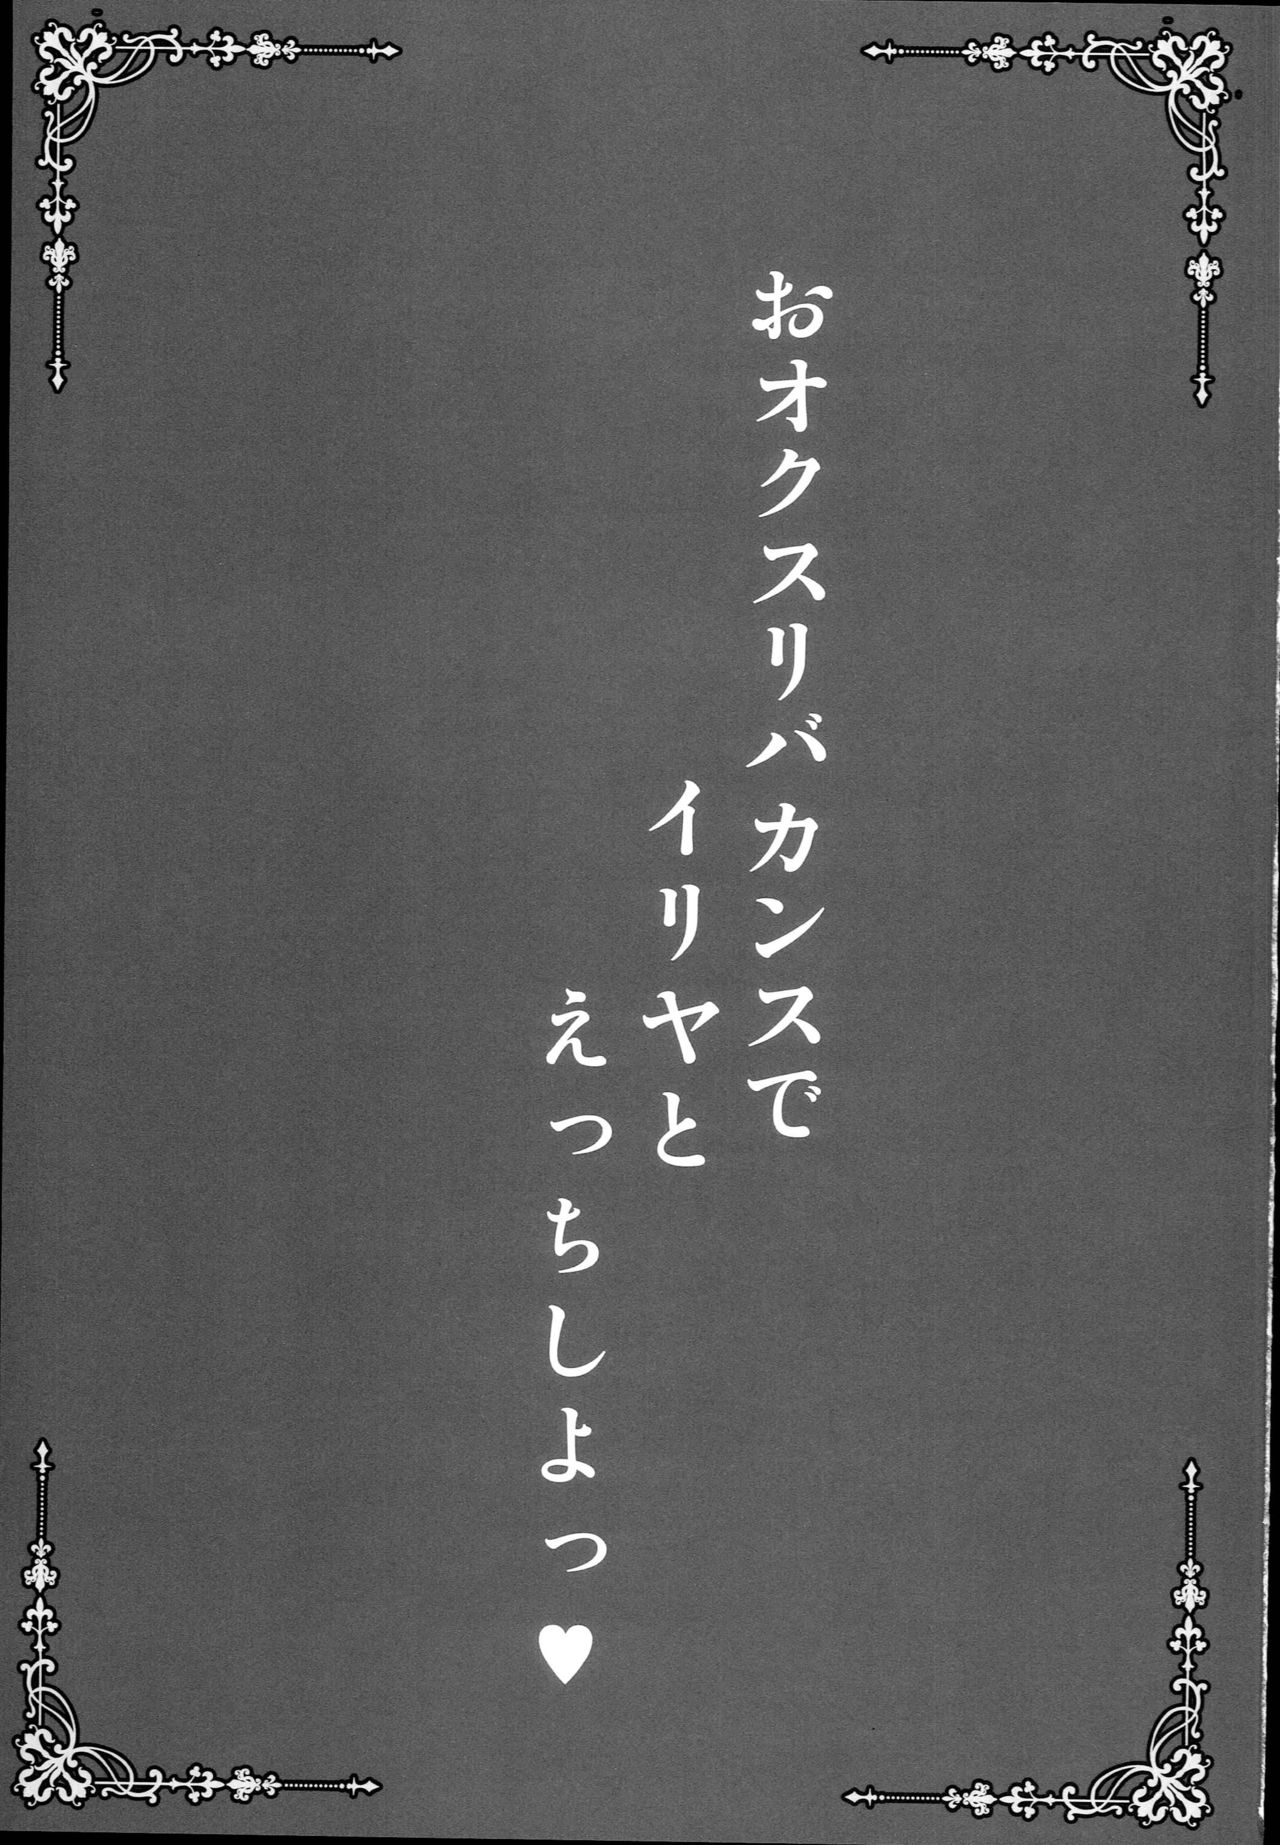 おオクスリバカンスで
イリヤと
えっちしよっ♥